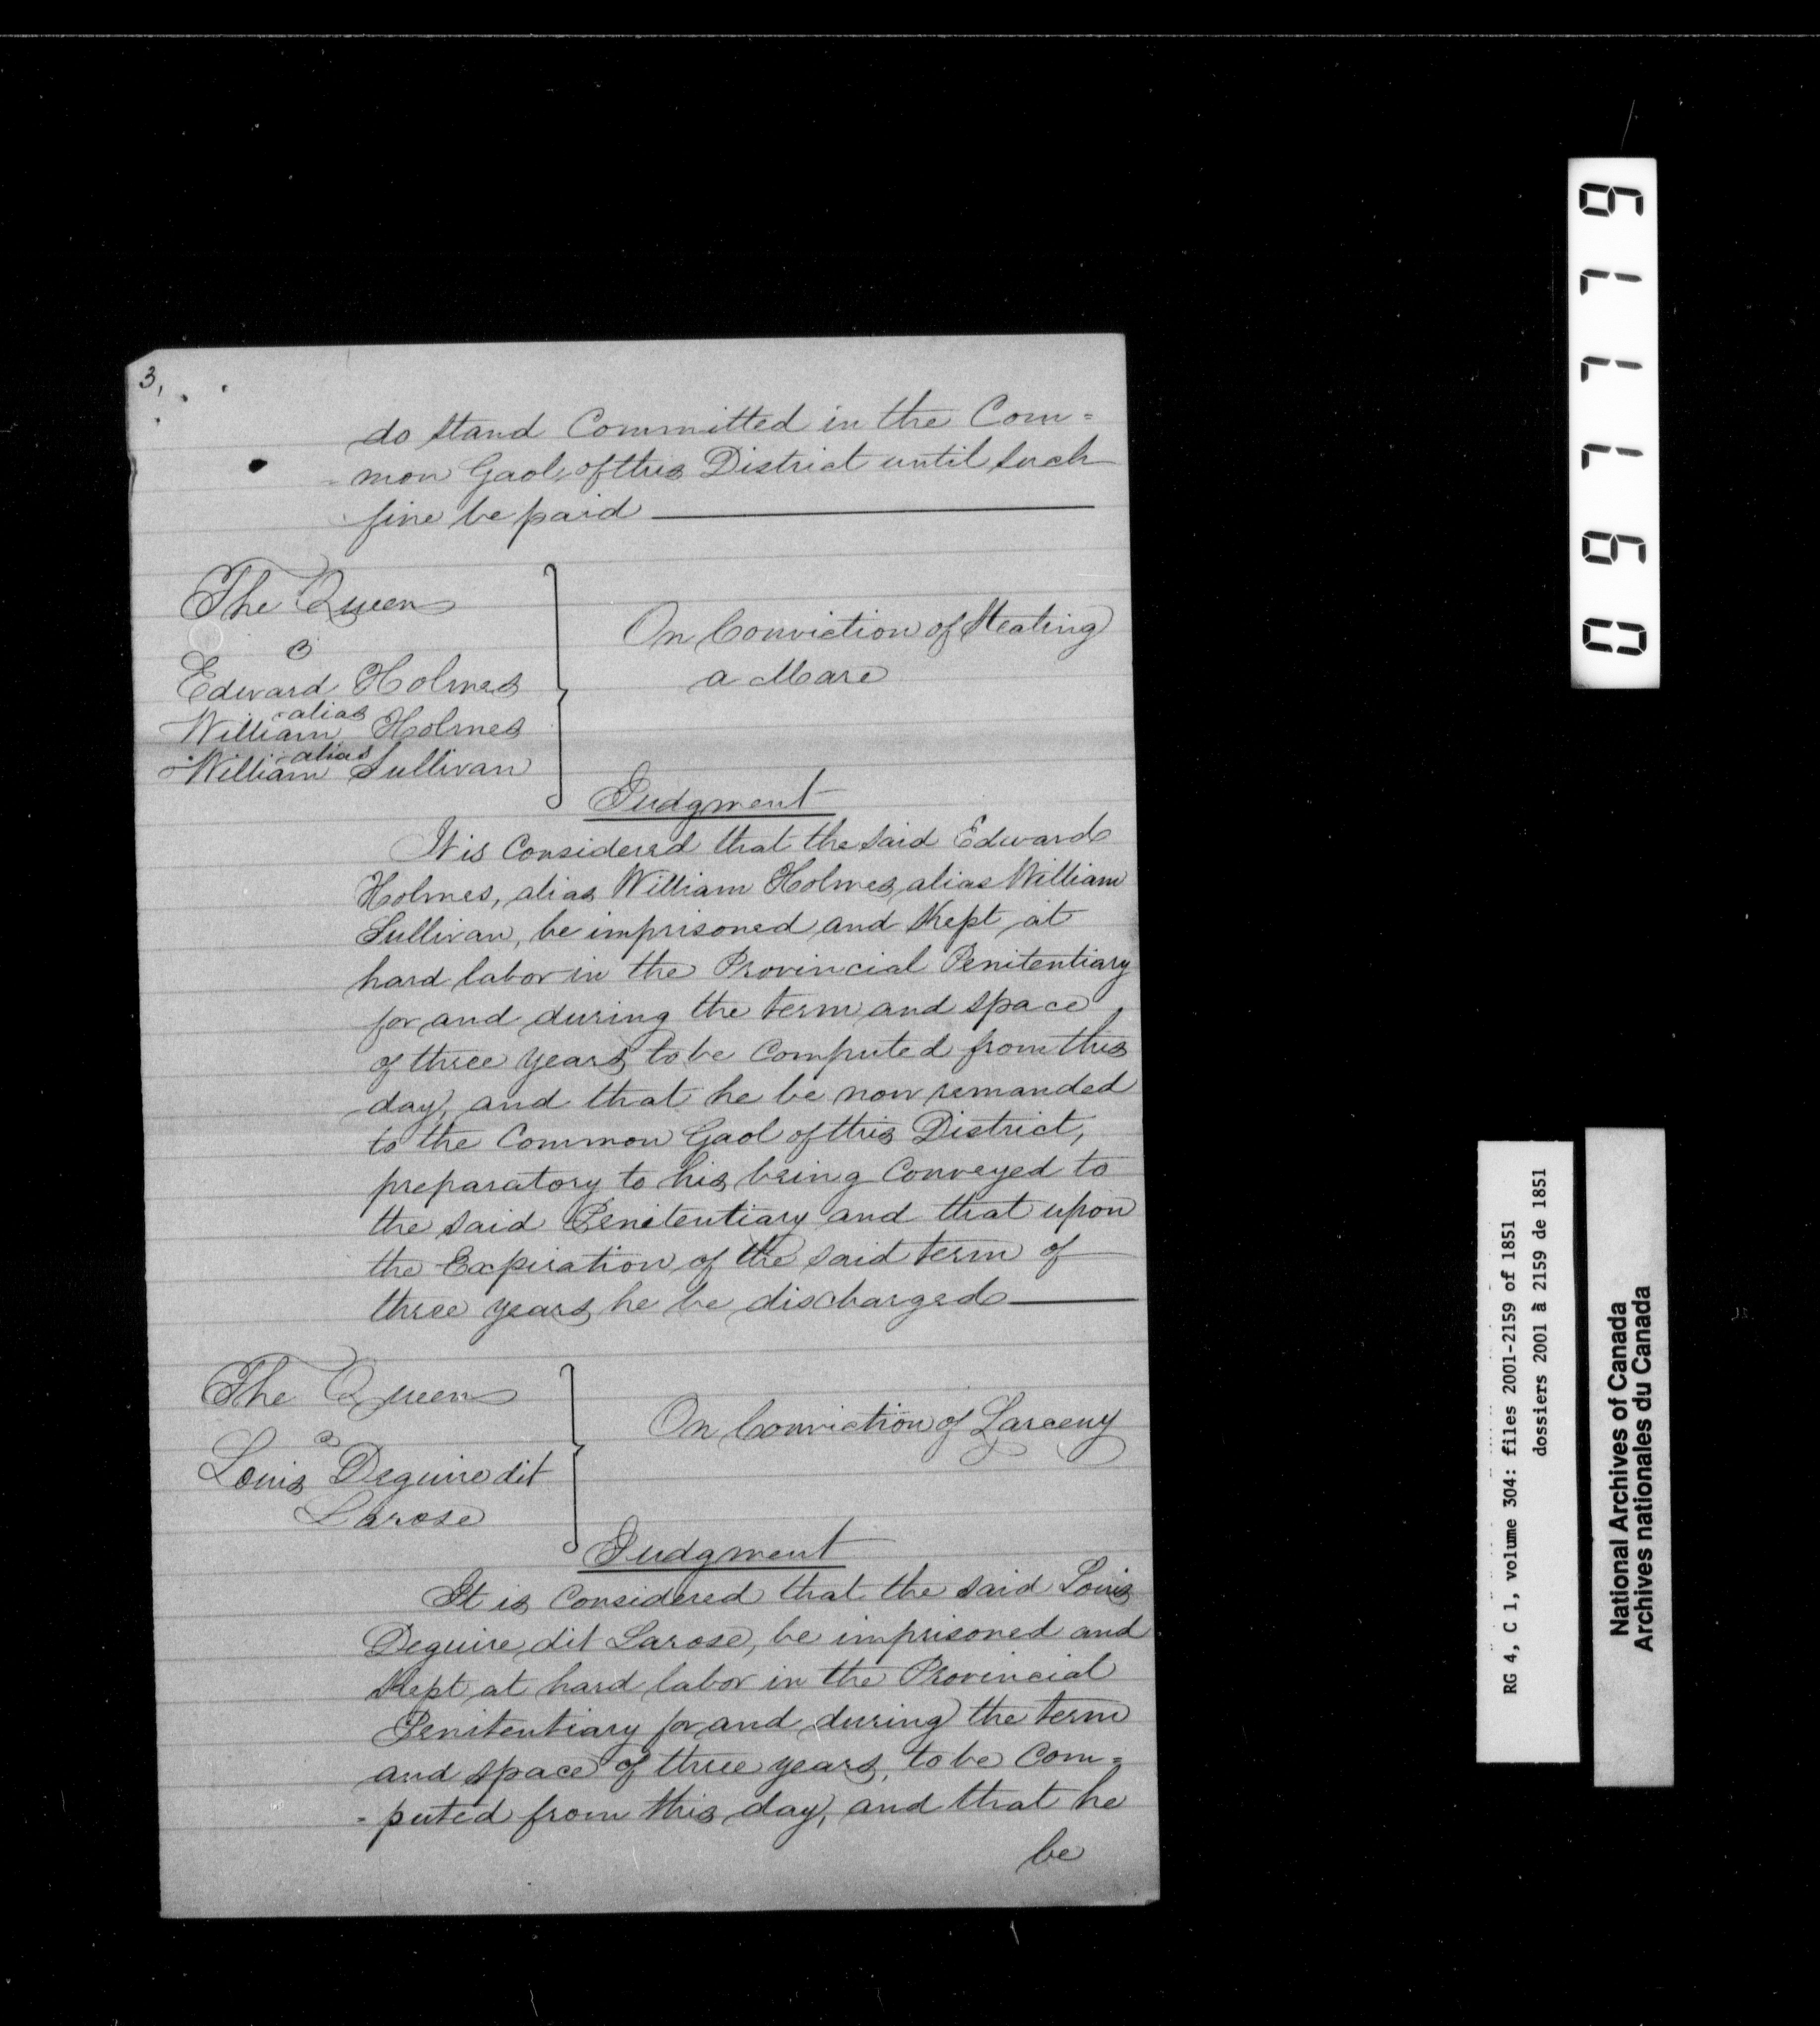 3,
do stand Committed in the Com=
=mon Gaol, of this District until such
fine be paid
The Queen
Edward Holmes
alias
William Holmes
alias
William Sullivan
On Conviction of Stealing
a Mare
Judgment
It is Considered that the said Edward
Holmes, alias William Holmes, alias William
Sullivan, be imprisoned and Kept at
hard labor in the Provincial Penitentiary
for and during the term and space
of three years, to be Computed from this
day, and that he be now remanded
to the Common Gaol of this District,
preparatory to his being Conveyed to
the said Penitentiary and that upon
the Expiration of the said term of
three years he be discharged
The Queen
Louis Deguire dit
Larose
On Conviction of Larceny
Judgment
It is Considered that the said Louis
Deguire dit Larose, be imprisoned and
Kept at hard labor in the Provincial
Penitentiary for and during the term
and space of three years, to be Com=
=puted from this day, and that he
be
097779
RG 4, C 1, volume 304: files 2001-2159 of 1851
dossiers 2001 à 2159 de 1851
National Archives of Canada
Archives nationales du Canada